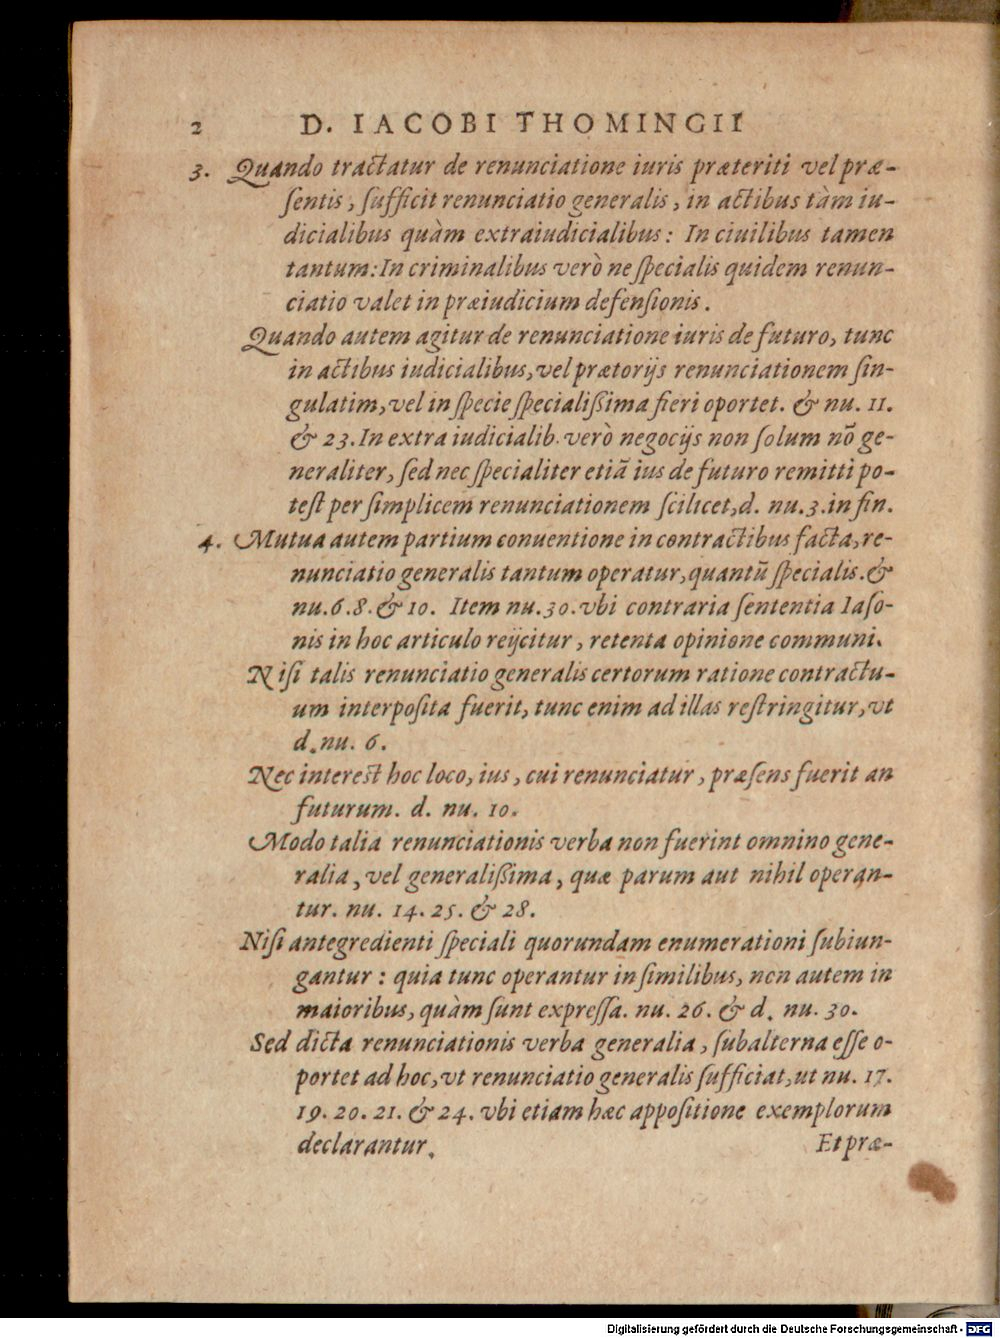 2 D. IACOBI THOMINGII
3. Quando tractatur de renunciatione iuris præteriti vel præ-
ſentis, ſufficit renunciatio generalis, in actibus tàm iu-
dicialibus quàm extraiudicialibus: In ciuilibus tamen
tantum: In criminalibus verò ne ſpecialis quidem renun-
ciatio valet in præiudicium defenſionis.
Quando autem agitur de renunciatione iuris de futuro, tunc
in actibus iudicialibus, vel prætorijs renunciationem ſin-
gulatim, vel in ſpecie ſpecialißima fieri oportet. & nu. 11.
& 23. In extra iudicialib. verò negocijs non ſolum nõ ge-
neraliter, ſed nec ſpecialiter etiã ius de futuro remitti po-
teſt per ſimplicem renunciationem ſcilicet, d. nu. 3. in fin.
4. Mutua autem partium conuentione in contractibus facta, re-
nunciatio generalis tantum operatur, quantũ ſpecialis. &
nu. 6. 8. & 10. Item nu. 30. vbi contraria ſententia Iaſo-
nis in hoc articulo reijcitur, retenta opinione communi.
Niſi talis renunciatio generalis certorum ratione contractu-
um interpoſita fuerit, tunc enim ad illas reſtringitur, vt
d. nu. 6.
Nec intereſt hoc loco, ius, cui renunciatur, præſens fuerit an
futurum. d. nu. 10.
Modo talia renunciationis verba non fuerint omnino gene-
ralia, vel generalißima, quæ parum aut nihil operan-
tur. nu. 14. 25. & 28.
Niſi antegredienti ſpeciali quorundam enumerationi ſubiun-
gantur: quia tunc operantur in ſimilibus, non autem in
maioribus, quàm ſunt expreſſa. nu. 26. & d. nu. 30.
Sed dicta renunciationis verba generalia, ſubalterna eſſe o-
portet ad hoc, vt renunciatio generalis ſufficiat, ut nu. 17.
19. 20. 21. & 24. vbi etiam hæc appoſitione exemplorum
declarantur. Et præ-
Digitalisierung gefördert durch die Deutsche Forschungsgemeinschaft - DFG